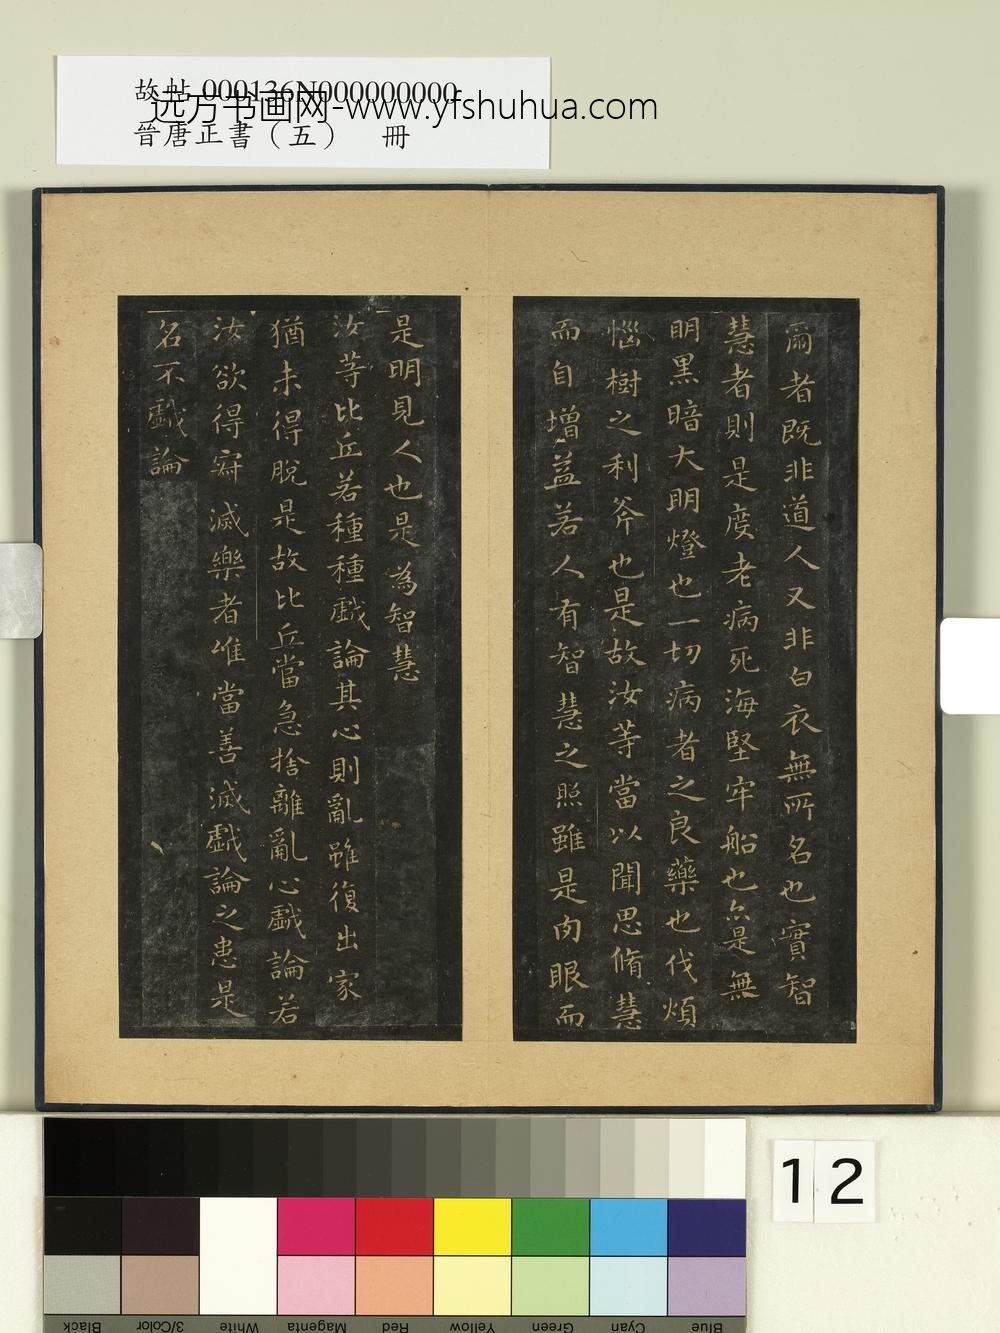 故帖 000136N000000000
远方书画网-www.yfshuhua.com
晉唐正書（五）　冊
爾者既非道人又非白衣無所名也實智
慧者則是度老病死海堅牢船也亦是無
明黑暗大明燈也一切病者之良藥也伐煩
惱樹之利斧也是故汝等當以聞思脩慧
而自增益若人有智慧之照雖是肉眼而
是明見人也是為智慧
汝等比丘若種種戲論其心則亂雖復出家
猶未得脫是故比丘當急捨離亂心戲論若
汝欲得寂滅樂者唯當善滅戲論之患是
名不戲論
12
Black
3/Color
White
Magenta
Red
Yellow
Green
Cyan
Blue